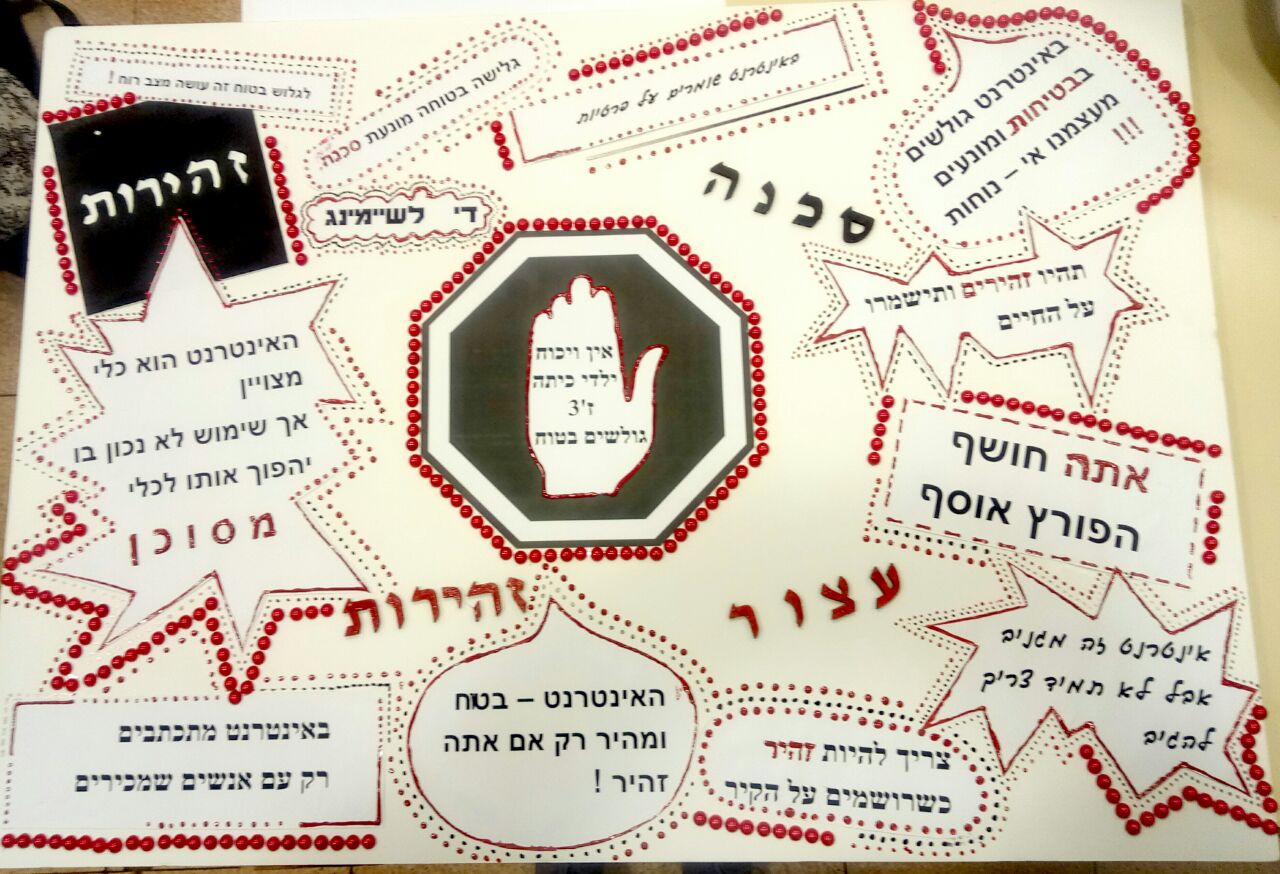 לגלוש בטוח זה עושה מצב רוח !
גלישה בטוחה מונעת סכנה
באינטרנט שומרים על פרטיות
באינטרנט גולשים
בבטיחות ומונעים
מעצמנו אי – נוחות
!!!
זהירות
די לשיימינג
סכנה
תהיו זהירים ותישמרו
על החיים
האינטרנט הוא כלי
מצויין
אך שימוש לא נכון בו
יהפוך אותו לכלי
מסוכן
אין ויכוח
ילדי כיתה
ז'3
גולשים בטוח
אתה חושף
הפורץ אוסף
זהירות
עצור
אינטרנט זה מגניב
אבל לא תמיד צריך
להגיב
באינטרנט מתכתבים
רק עם אנשים שמכירים
האינטרנט – בטוח
ומהיר רק אם אתה
זהיר !
צריך להיות זהיר
כשרושמים על הקיר